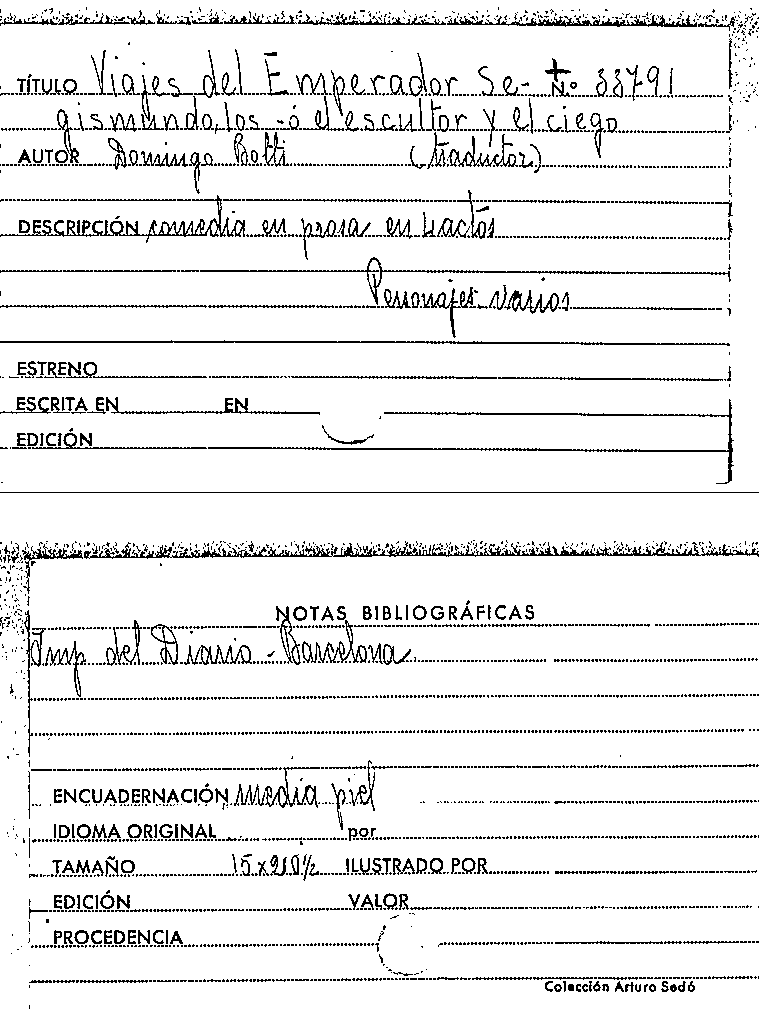 TÍTULO Viajes del Emperador Se- Nº 33791
gismundo, los -ó el escultor y el ciego
AUTOR Domingo Botti (traductor)
DESCRIPCIÓN comedia en prosa en 4 actos
Personajes varios
ESTRENO
ESCRITA EN EN
EDICIÓN
NOTAS BIBLIOGRÁFICAS
Imp del Diario - Barcelona
ENCUADERNACIÓN media piel
IDIOMA ORIGINAL por
TAMAÑO ILUSTRADO POR
EDICIÓN VALOR
PROCEDENCIA
Colección Arturo Sedó